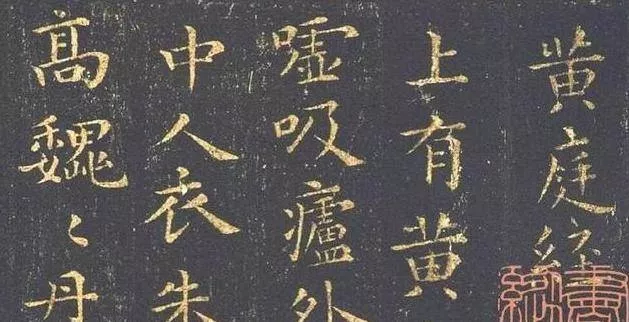 黄庭經
上有黄
嘘吸廬外
中人衣朱
高巍〻丹